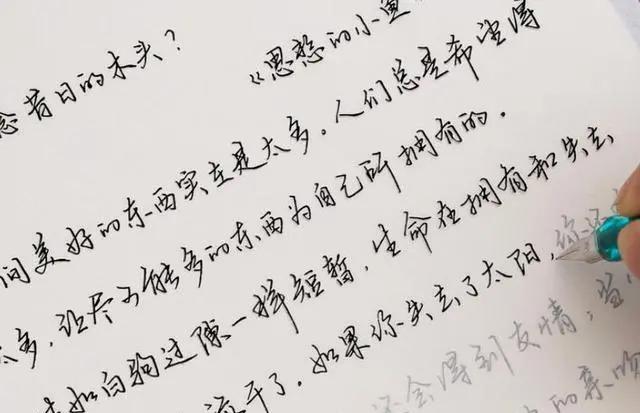 念昔日的木头?
《愚憨的小鱼
间美好的东西实在是太多,人们总是希望得
太多,让尽可能多的东西为自己所拥有的.
如白驹过隙一样短暂,生命在拥有和失去
流干了.如果你失去了太阳,你还
还会得到友情,当